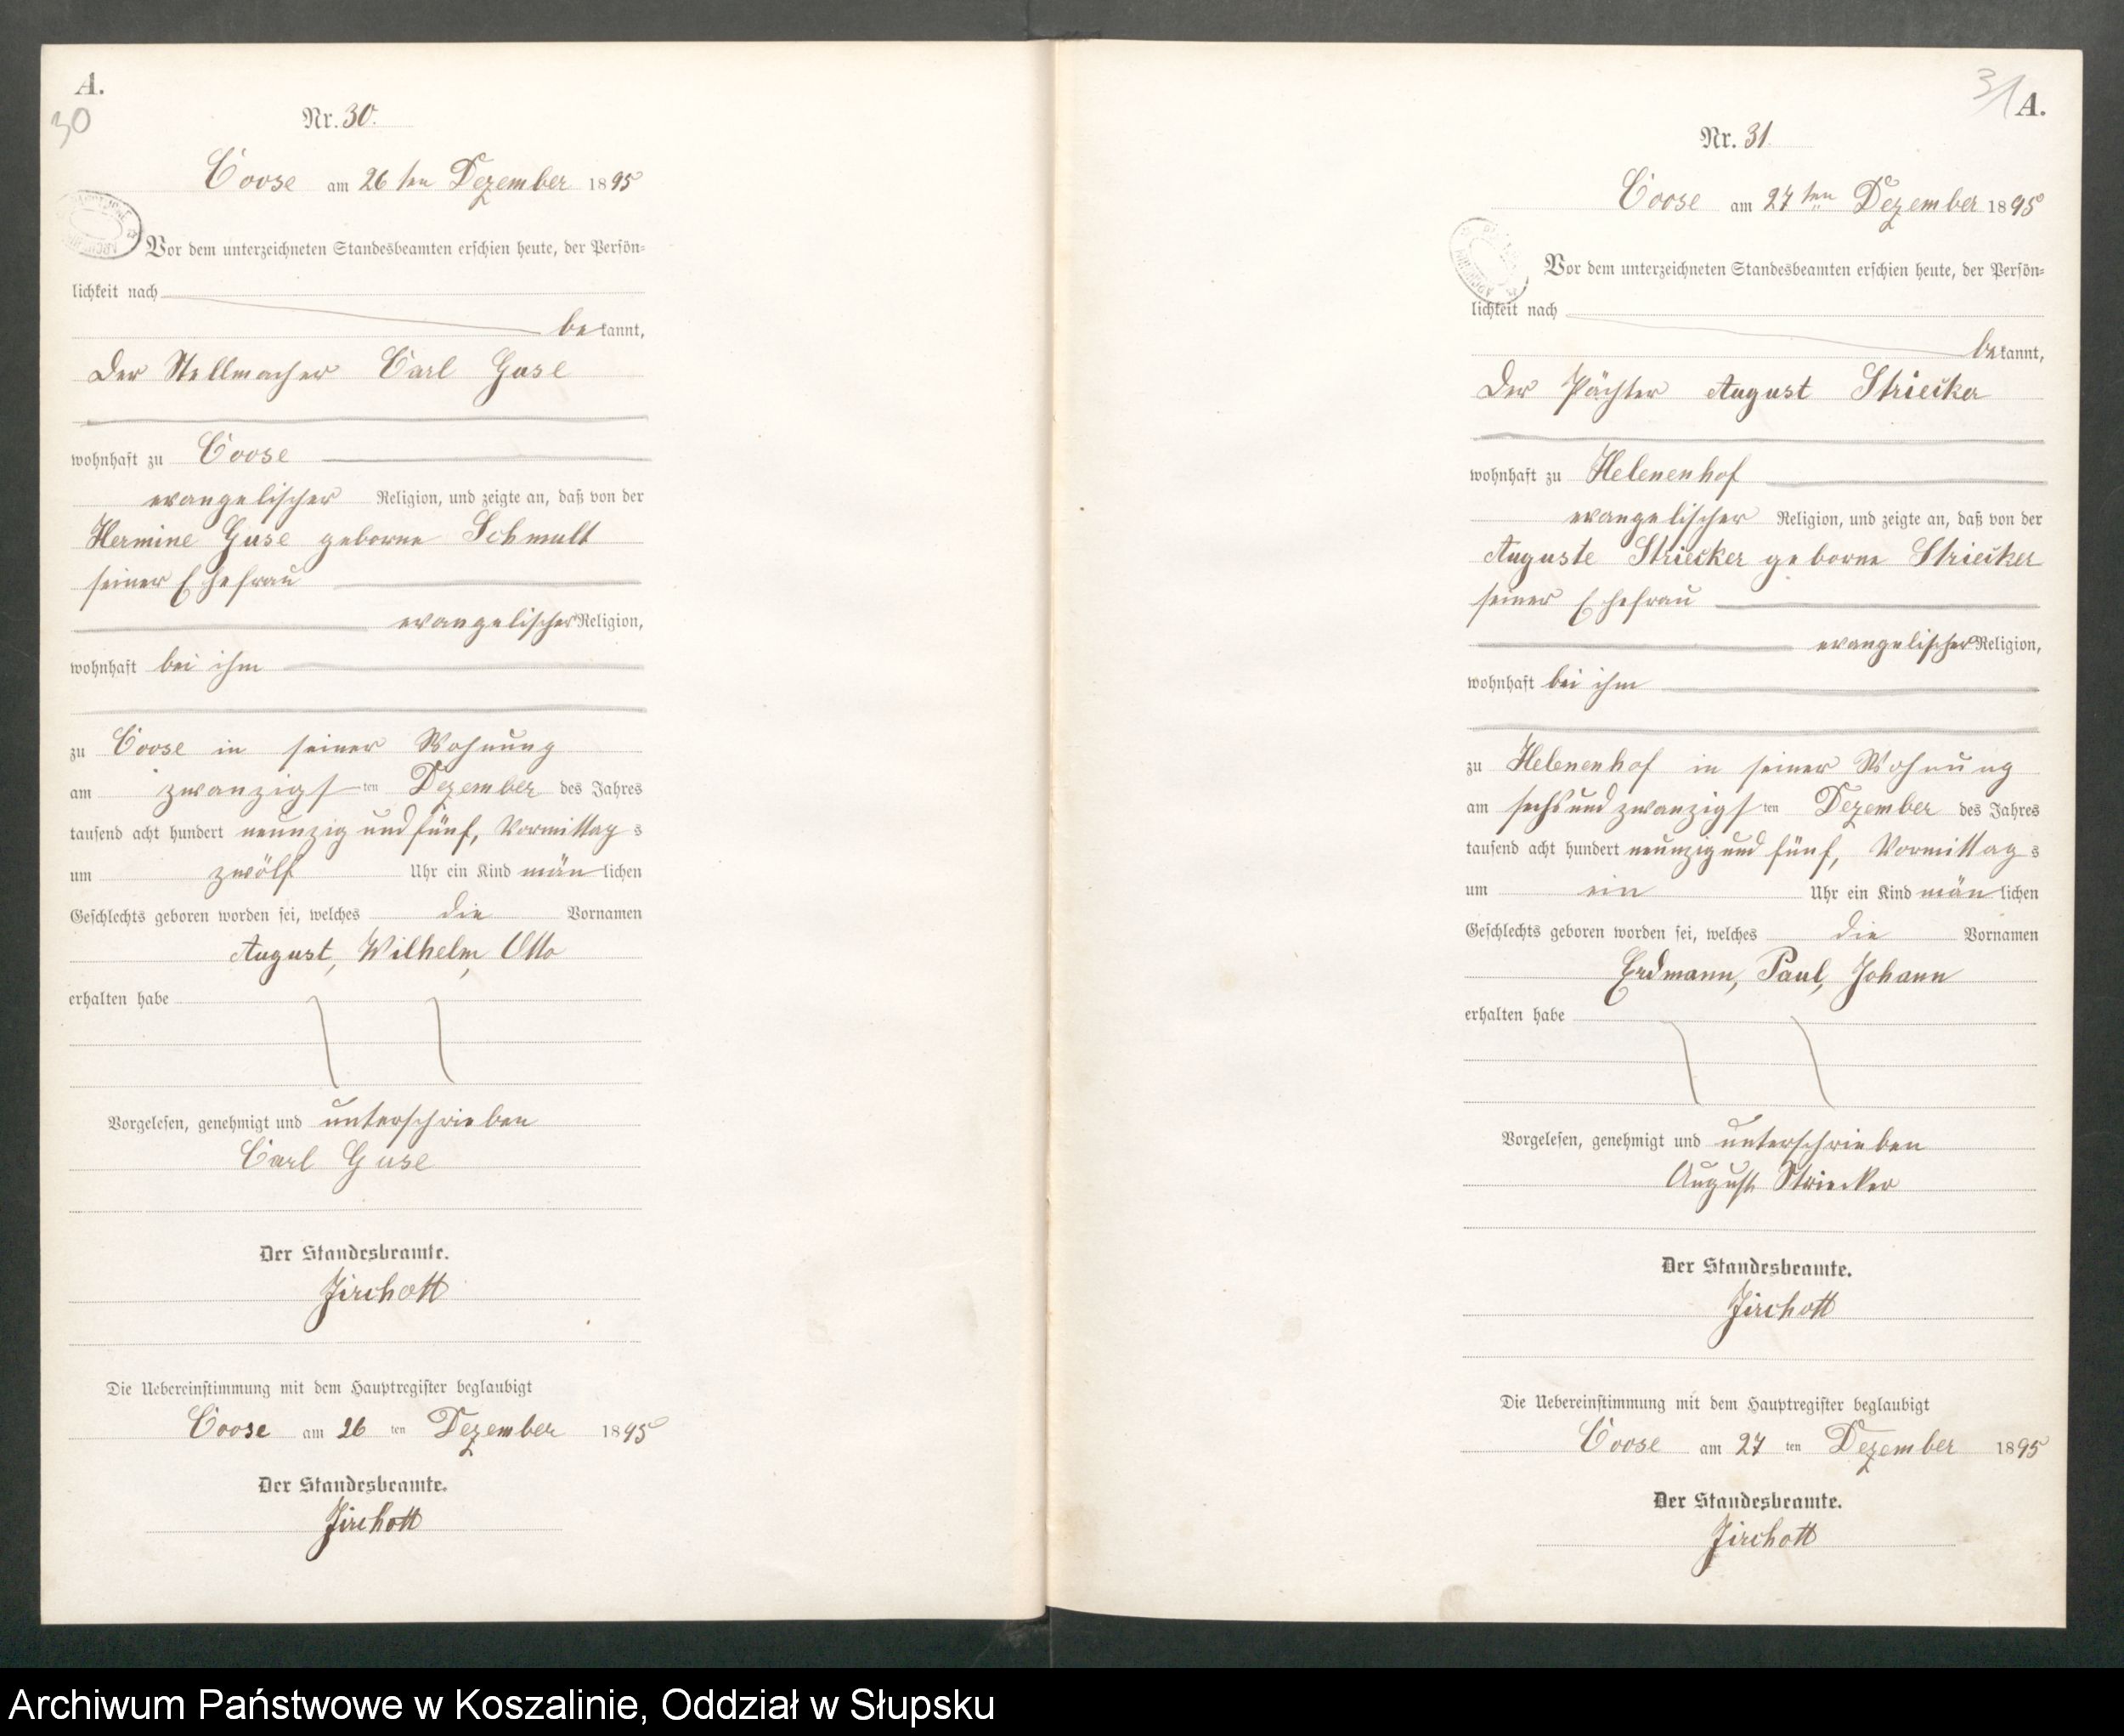 A.
30
Nr. 30.
Coose am 26ten Dezember 1895
Vor dem unterzeichneten Standesbeamten erschien heute, der Persön-
lichkeit nach
bekannt,
der Stellmacher Carl Guse
wohnhaft zu Coose
evangelischer Religion, und zeigte an, daß von der
Hermine Guse geborne Schmalt
seiner Ehefrau
evangelischer Religion,
wohnhaft bei ihm
zu Coose in seiner Wohnung
am zwanzigsten Dezember des Jahres
tausend acht hundert neunzig und fünf, Vormittags
um zwölf Uhr ein Kind mänlichen
Geschlechts geboren worden sei, welches die Vornamen
August, Wilhelm, Otto
erhalten habe
Vorgelesen, genehmigt und unterschrieben
Carl Guse
Der Standesbeamte.
Jirchott
Die Uebereinstimmung mit dem Hauptregister beglaubigt
Coose am 26ten Dezember 1895
Der Standesbeamte.
Jirchott
31
A.
Nr. 31.
Coose am 27ten Dezember 1895
Vor dem unterzeichneten Standesbeamten erschien heute, der Persön-
lichkeit nach
bekannt,
der Pächter August Striecker
wohnhaft zu Helenenhof
evangelischer Religion, und zeigte an, daß von der
Auguste Striecker geborne Striecker
seiner Ehefrau
evangelischer Religion,
wohnhaft bei ihm
zu Helenenhof in seiner Wohnung
am sechsundzwanzigsten Dezember des Jahres
tausend acht hundert neunzig und fünf, Vormittags
um ein Uhr ein Kind mänlichen
Geschlechts geboren worden sei, welches die Vornamen
Erdmann, Paul, Johann
erhalten habe
Vorgelesen, genehmigt und unterschrieben
August Striecker
Der Standesbeamte.
Jirchott
Die Uebereinstimmung mit dem Hauptregister beglaubigt
Coose am 27ten Dezember 1895
Der Standesbeamte.
Jirchott
Archiwum Państwowe w Koszalinie, Oddział w Słupsku